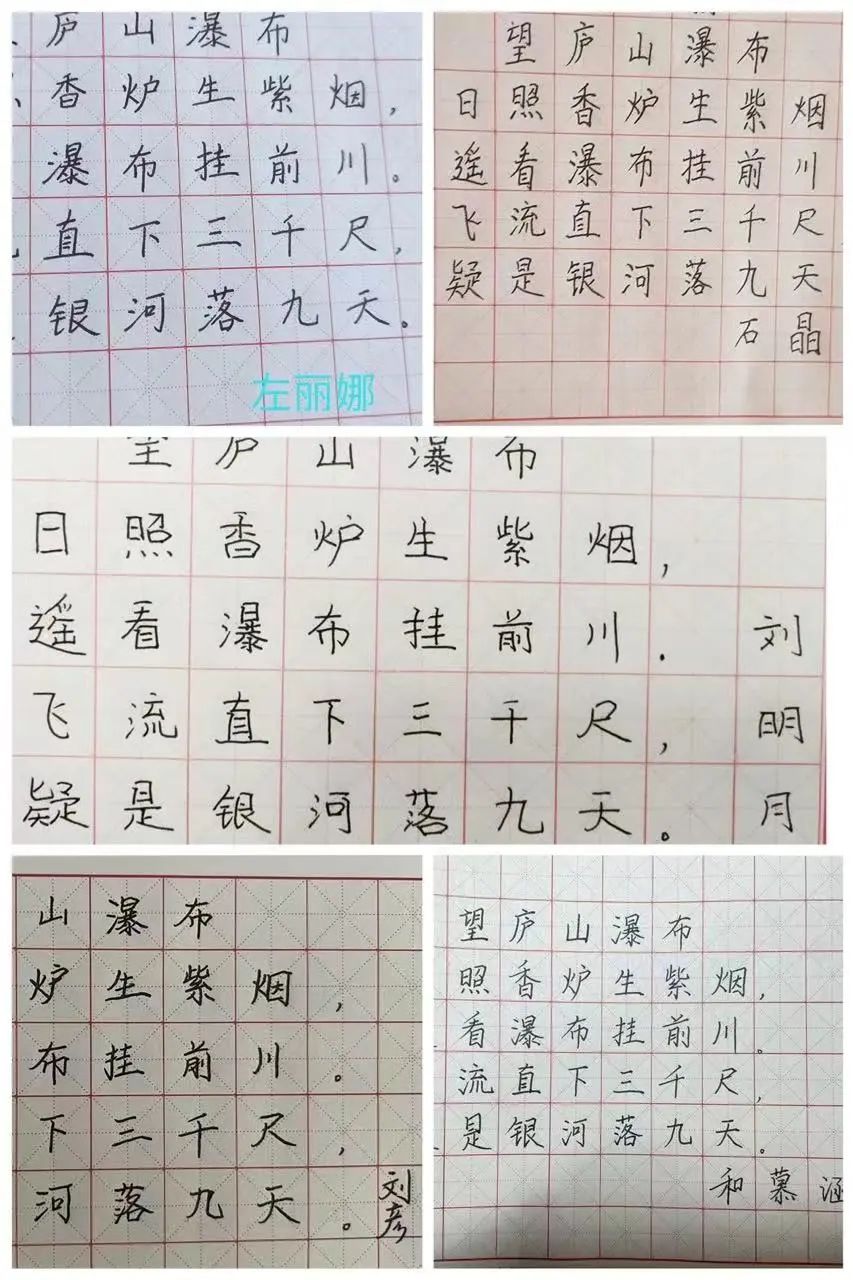 庐山瀑布
香炉生紫烟，
瀑布挂前川。
直下三千尺，
银河落九天。
左丽娜
望庐山瀑布
日照香炉生紫烟
遥看瀑布挂前川
飞流直下三千尺
疑是银河落九天
石晶
望庐山瀑布
日照香炉生紫烟，
遥看瀑布挂前川. 刘
飞流直下三千尺， 明
疑是银河落九天。 月
山瀑布
炉生紫烟，
布挂前川。
下三千尺，
河落九天。
刘彦
望庐山瀑布
照香炉生紫烟，
看瀑布挂前川。
流直下三千尺，
是银河落九天。
和慕涵